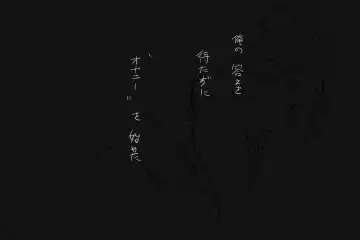 俺の 答えを
待たずに
“オナニー” を 始めた